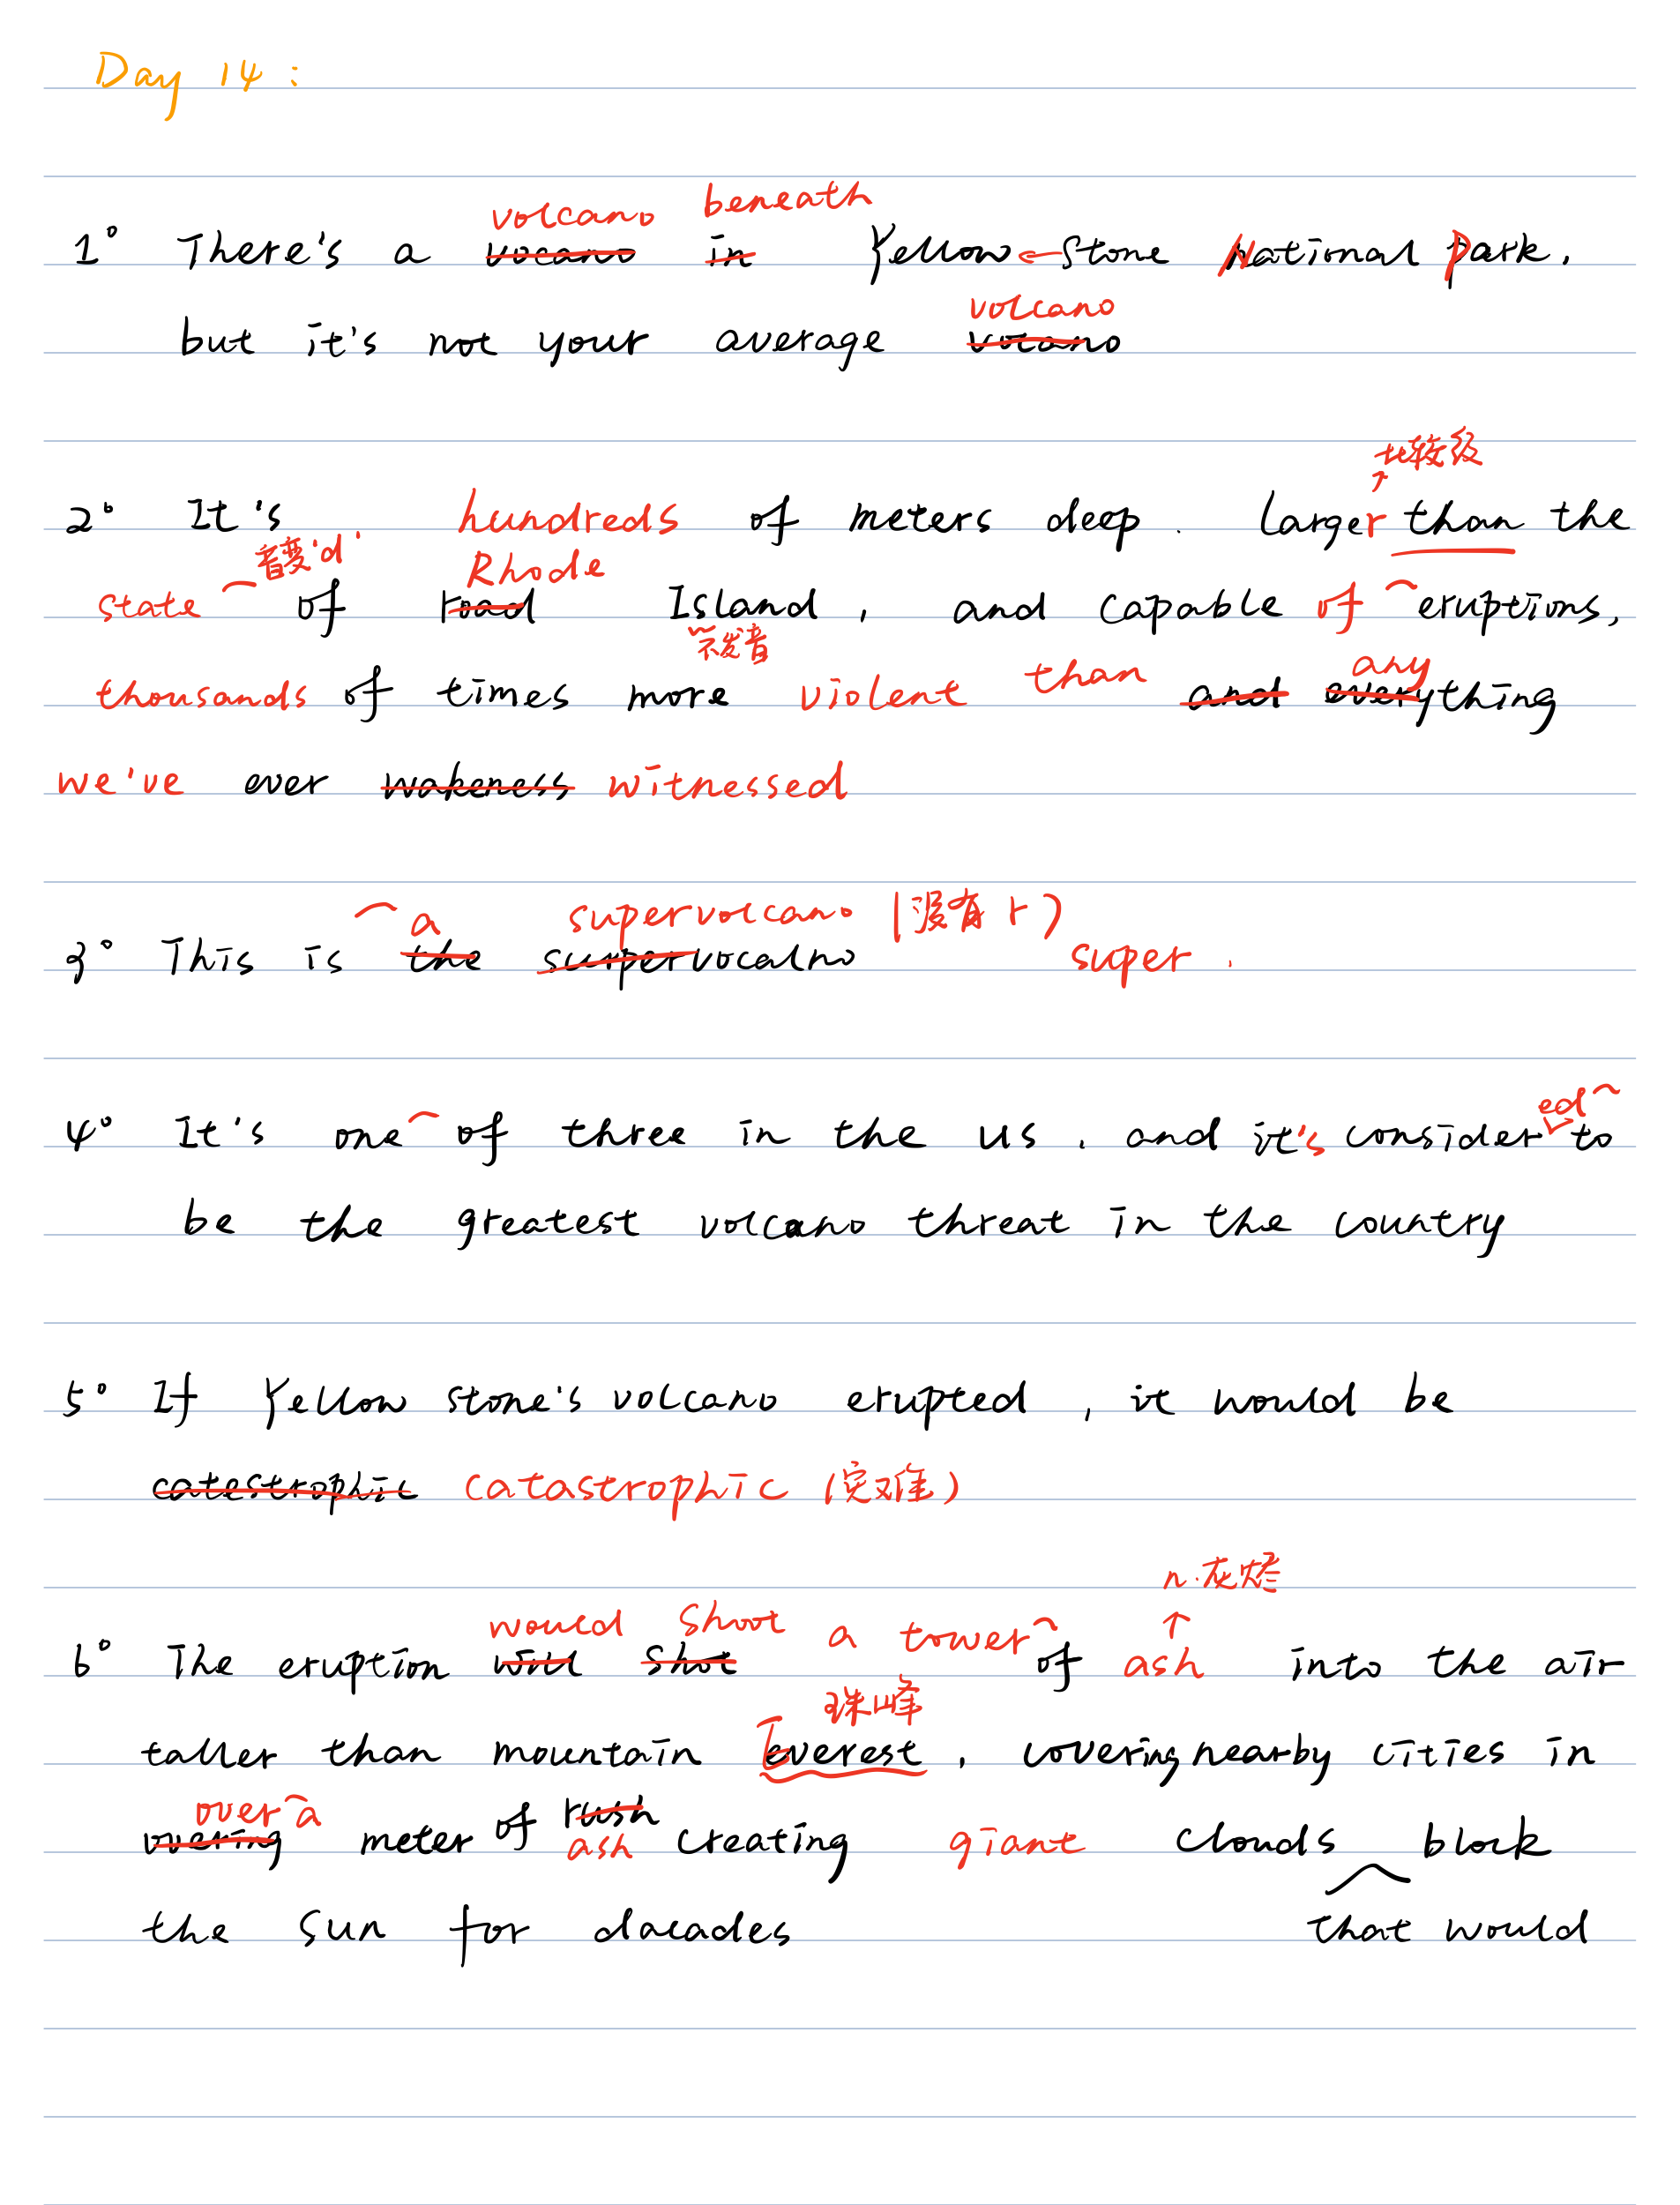 Day 14:
volcano beneath
1° There's a vocano in Yellow stone National Park,
volcano
but it's not your average votano
比较级
2° It's hundreds of meters deep. larger than the
音变'd' Rhode
state of road Island, and capable of eruptions,
不发音
than any
thousands of times more violent and everything
we've ever wakeness witnessed
a supervolcano (没有r)
3° This is the surpervocalno super.
ed
4° It's one of three in the us, and it's consider to
be the greatest volcano threat in the country
5° If Yellow stone's volcano erupted, it would be
catestrophic catastrophic (灾难)
n.灰烬
would shoot a tower
6° The eruption will shot of ash into the air
珠峰
taller than mountain Everest, covering nearby cities in
over a
overing meter of rush creating giant clouds block
ash
the sun for dacades that would